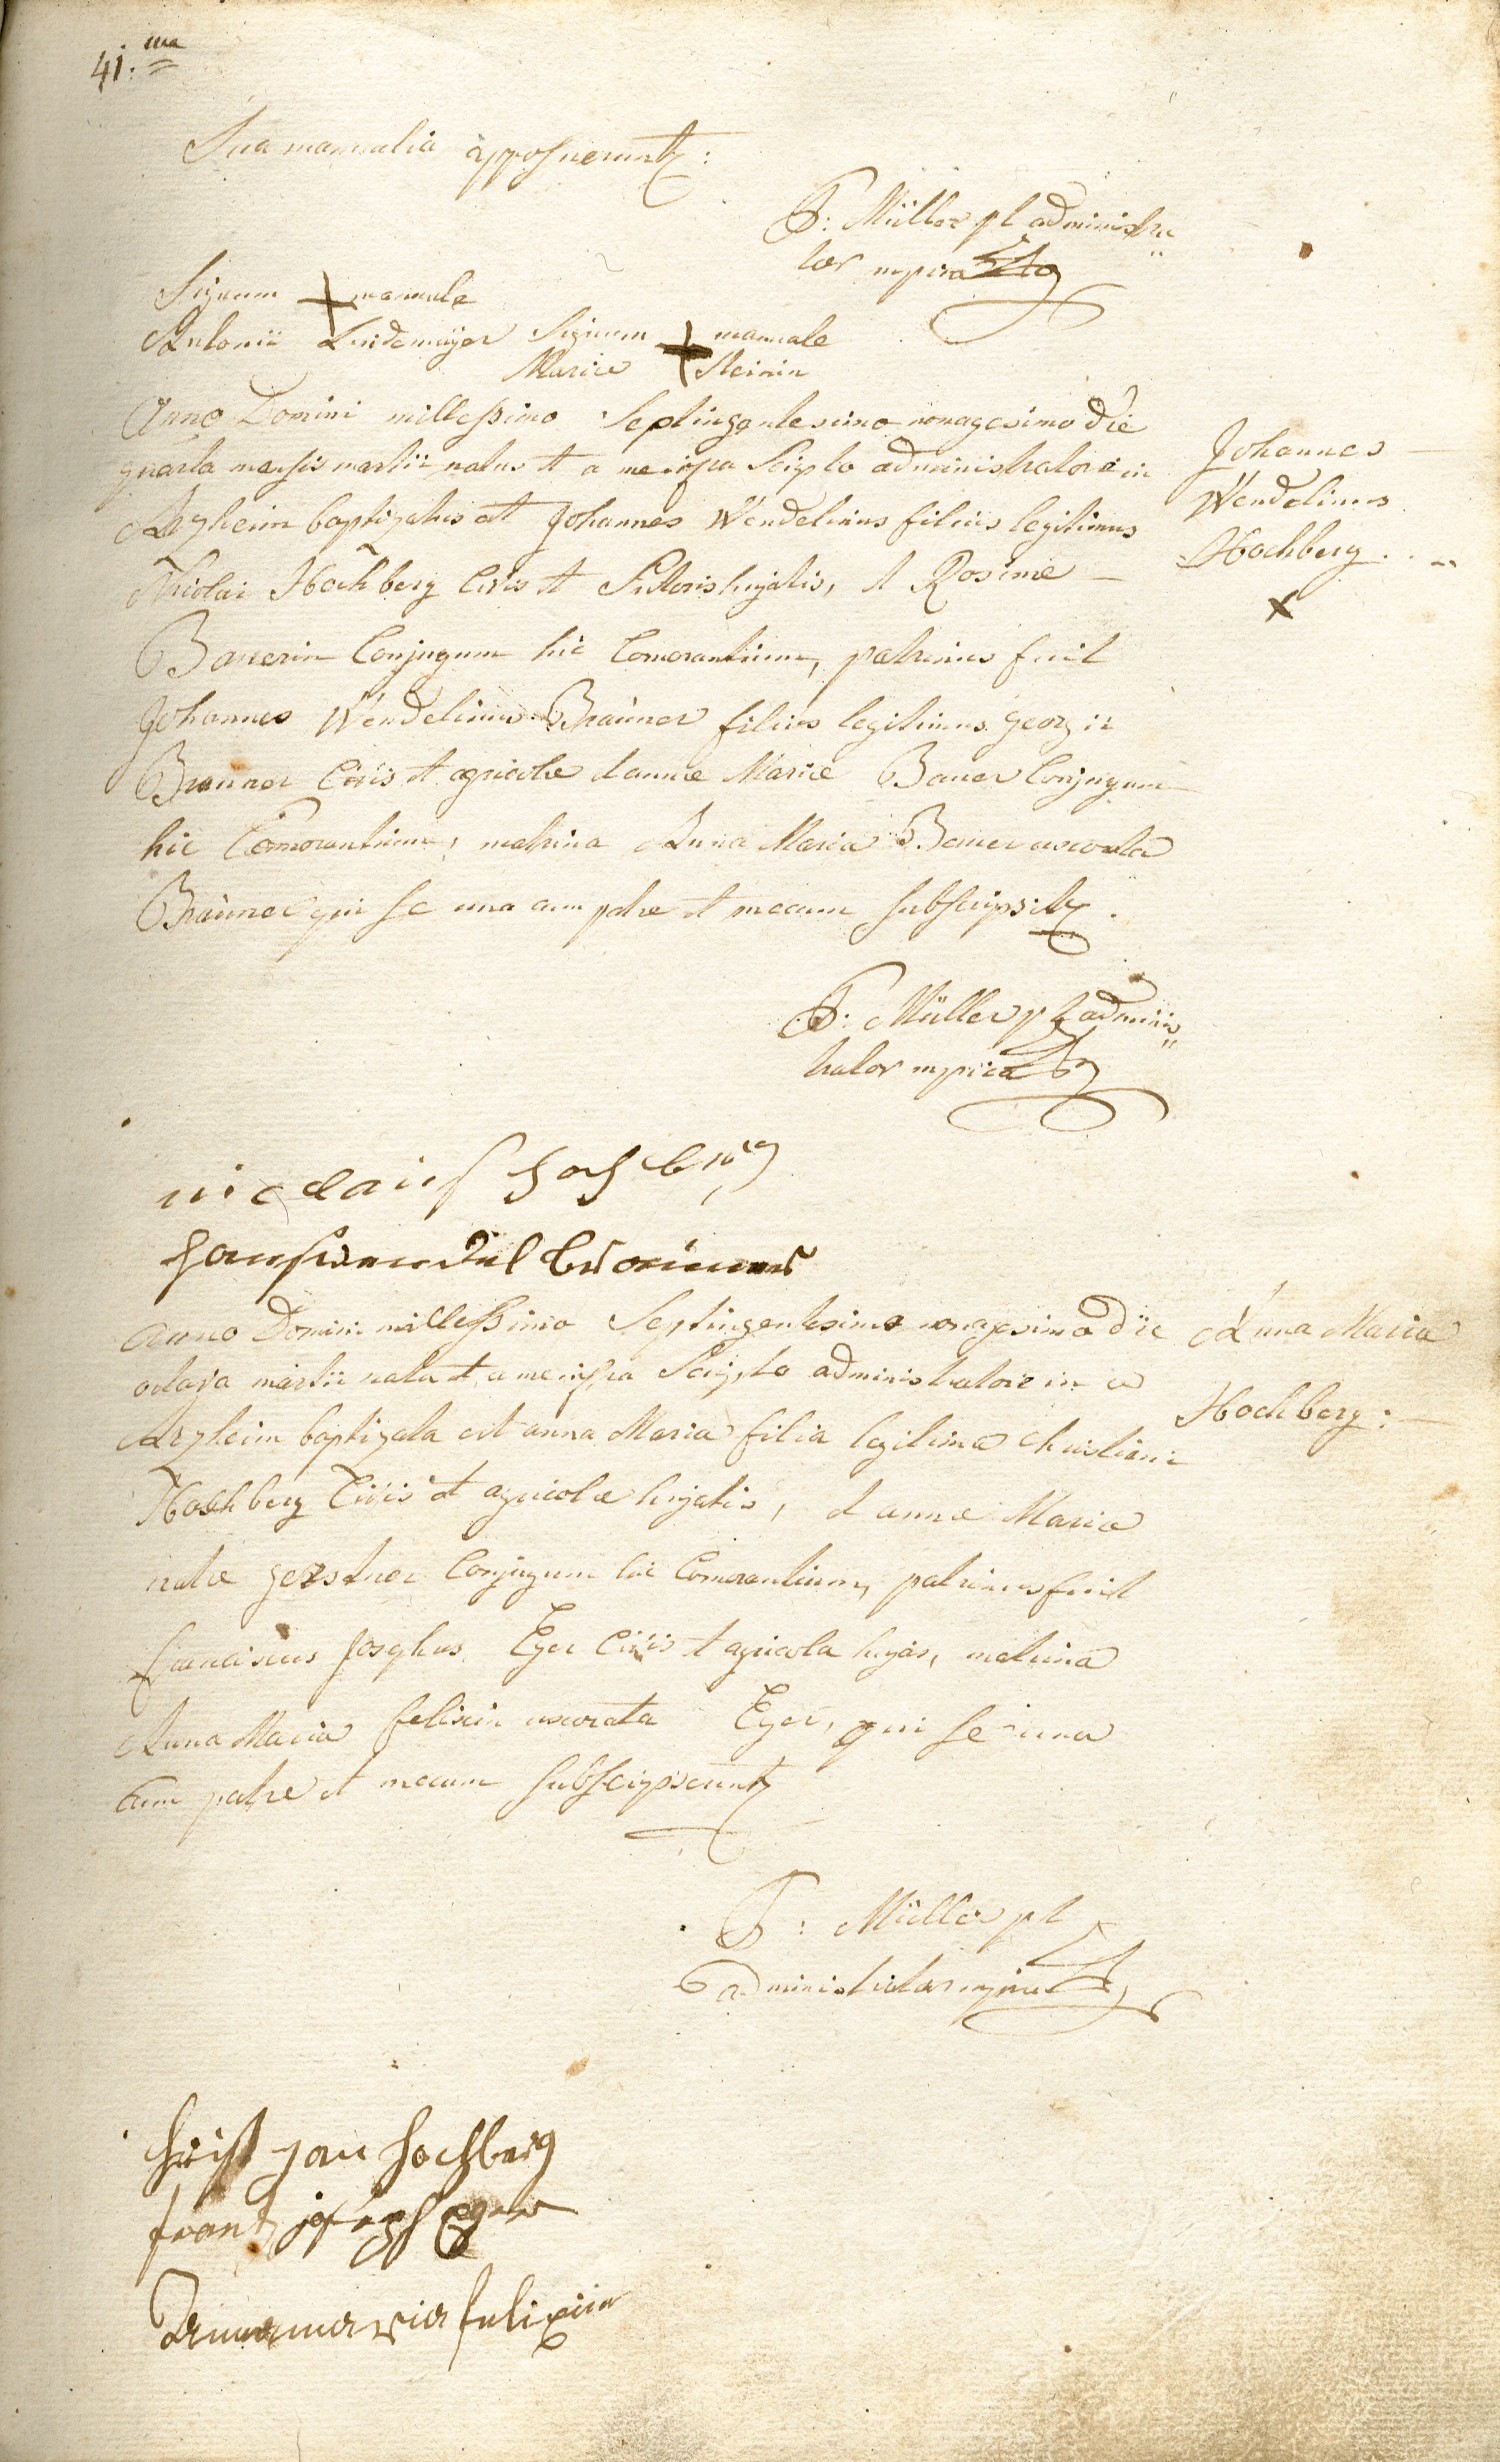 41.ma
Sua manualia apposuerunt:
F: Müller pl administra
tor mpria
Signum + manuale
Antonii Lindemeÿer Signum + manuale
Mariæ Steinin
Anno Domini millessimo Septingentesimo nonagesimo die
quarta mensis martii natus et a me infra Scripto administratore in
Arzheim baptizatus est Johannes Wendelinus filius legitimus
Nicolai Hochberg Civis et Sutoris hujatis, et Rosinæ
Bauerin Conjugum hic Comorantium, patrinus fuit
Johannes Wendelinus Braüner filius legitimus georgii
Braunner Civis et agricolæ et annæ Mariæ Bauer Conjugum
hic Commorantium, matrina Anna Maria Bauer uxorata
Braüner qui se una cum patre et mecum subscripsit.
Johannes
Wendelinus
Hochberg.
x
F: Müller pl admini
trator mpria
nicolaus hochberg
hanswendel braunner
Anno Domini millessimo Septingentesimo nonagesimo die
octava martii nata et a me infra Scripto administratore in
Arzheim baptizata est anna Maria filia legitima christiani
Hochberg Civis et agricolæ hujatis, et annæ Mariæ
natæ gerstner Conjugum hic Comorantium, patrinus fuit
franciscus Josephus Eger Civis et agricola hujas, matrina
Anna Maria felixin uxorata Eger, qui se una
cum patre et mecum subscripserunt
Anna Maria
Hochberg:
F: Müller pl
administrator mpria
christ jan hochberg
frantz joseph Eger
Annamaria felixin